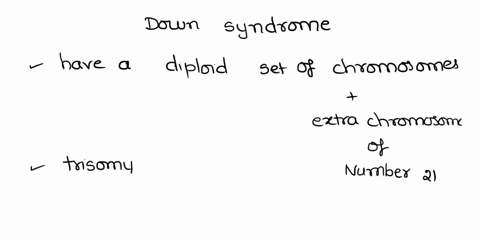 Down syndrome
✓ have a diploid set of chromosomes
+
extra chromosome
of
✓ trisomy Number 21